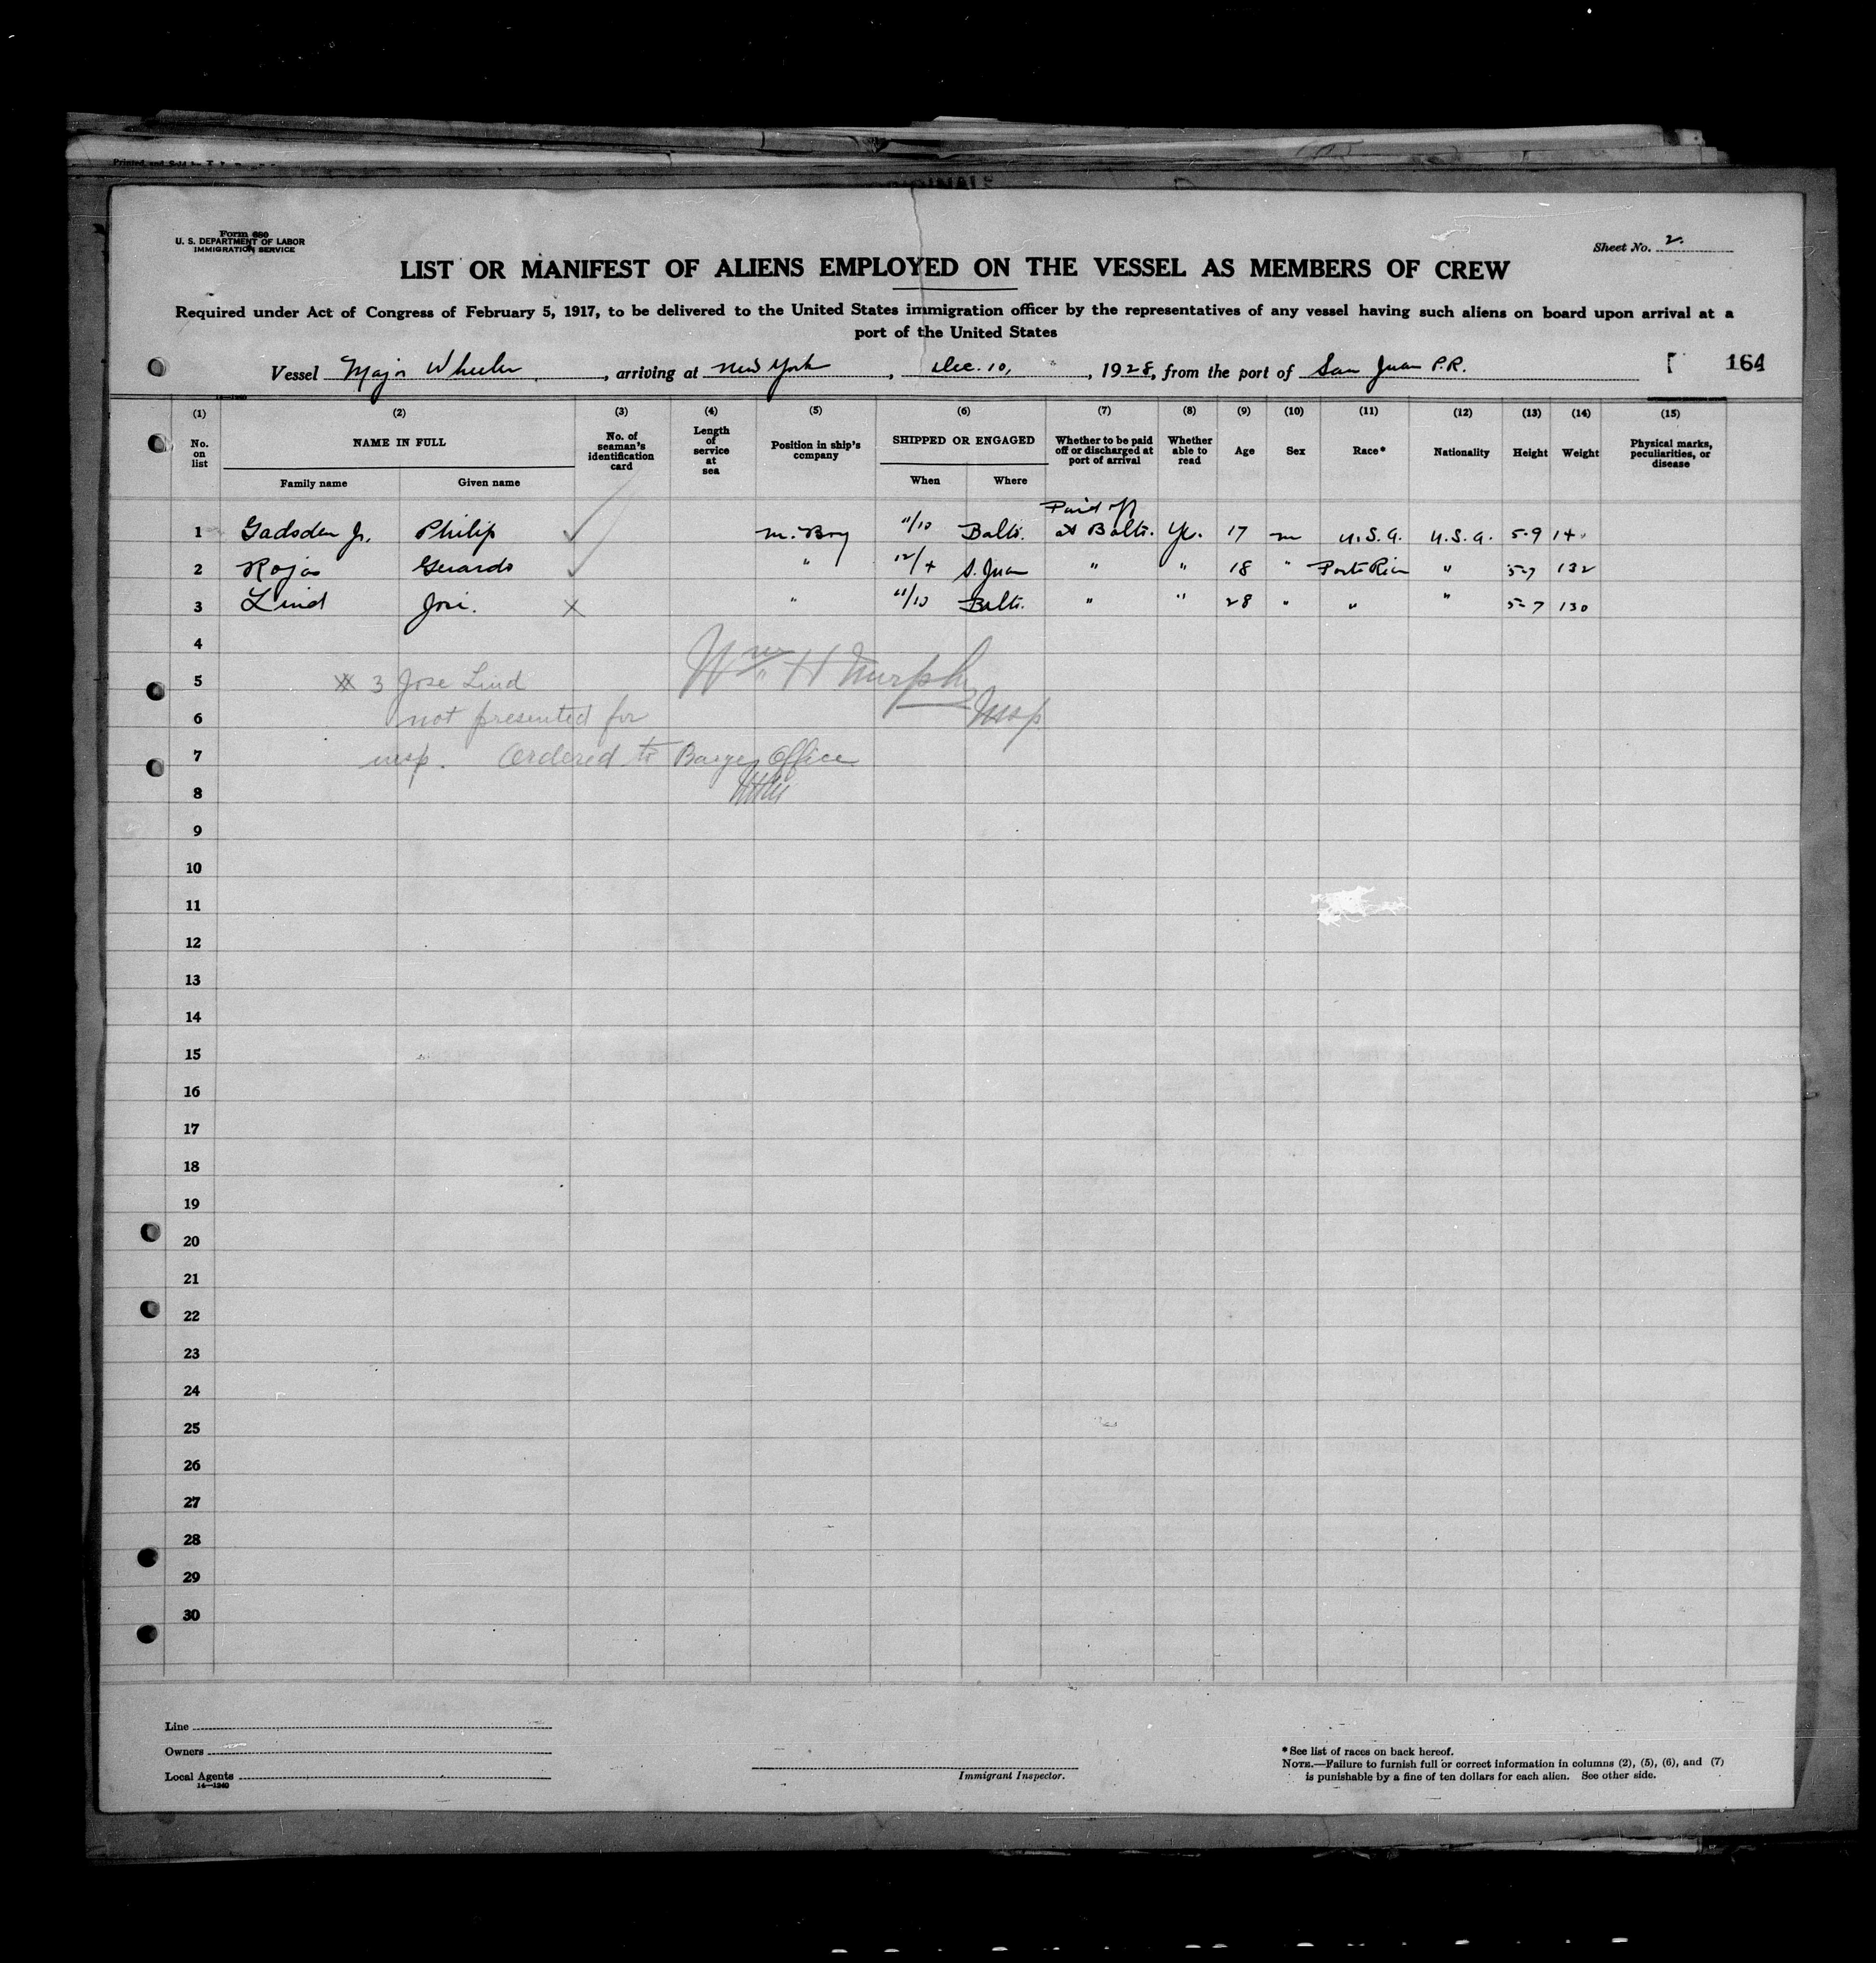 ORIGINALS
Form 680
U. S. DEPARTMENT OF LABOR
IMMIGRATION SERVICE
Sheet No. 2.
LIST OR MANIFEST OF ALIENS EMPLOYED ON THE VESSEL AS MEMBERS OF CREW
Required under Act of Congress of February 5, 1917, to be delivered to the United States immigration officer by the representatives of any vessel having such aliens on board upon arrival at a
port of the United States
Vessel Major Wheeler, arriving at New York, Dec. 10, 1928, from the port of San Juan P.R. 164
(1) (2) (3) (4) (5) (6) (7) (8) (9) (10) (11) (12) (13) (14) (15)
No. on list NAME IN FULL No. of seaman's identification card Length of service at sea Position in ship's company SHIPPED OR ENGAGED Whether to be paid off or discharged at port of arrival Whether able to read Age Sex Race* Nationality Height Weight Physical marks, peculiarities, or disease
Family name Given name When Where
Paid off
1 Gadsden Jr. Philip ✓ m. Boy 11/10 Balto. at Balto. 17 m U.S.A. U.S.A. 5-9
2 Rojas Gerardo ✓ " 12/4 S. Juan " " 18 " Porto Rican " 5-7 132
3 Lind Jose. X " 11/10 Balto. " " 28 " " " 5-7 130
4
Wm. H Murphy
5 3 Jose Lind
Insp
6 not presented for
7 insp. Ordered to Barge Office
8
9
10
11
12
13
14
15
16
17
18
19
20
21
22
23
24
25
26
27
28
29
30
Line
Owners
Local Agents
14—1240
Immigrant Inspector.
*See list of races on back hereof.
NOTE.—Failure to furnish full or correct information in columns (2), (5), (6), and (7)
is punishable by a fine of ten dollars for each alien. See other side.